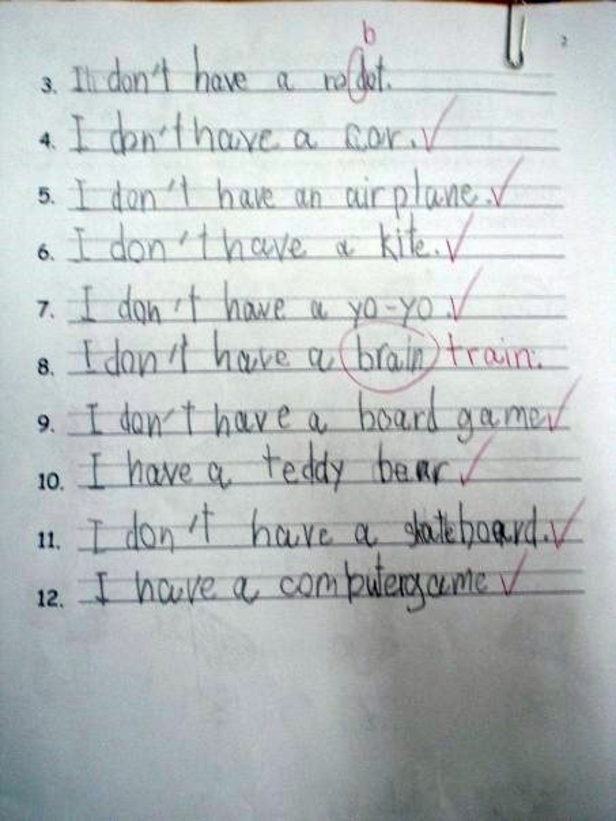 2
b
3. I don't have a rodot.
4. I don't have a car.
5. I don't have an airplane.
6. I don't have a kite.
7. I don't have a yo-yo.
8. I don't have a brain train.
9. I don't have a board game
10. I have a teddy bear
11. I don't have a skateboard.
12. I have a computergame